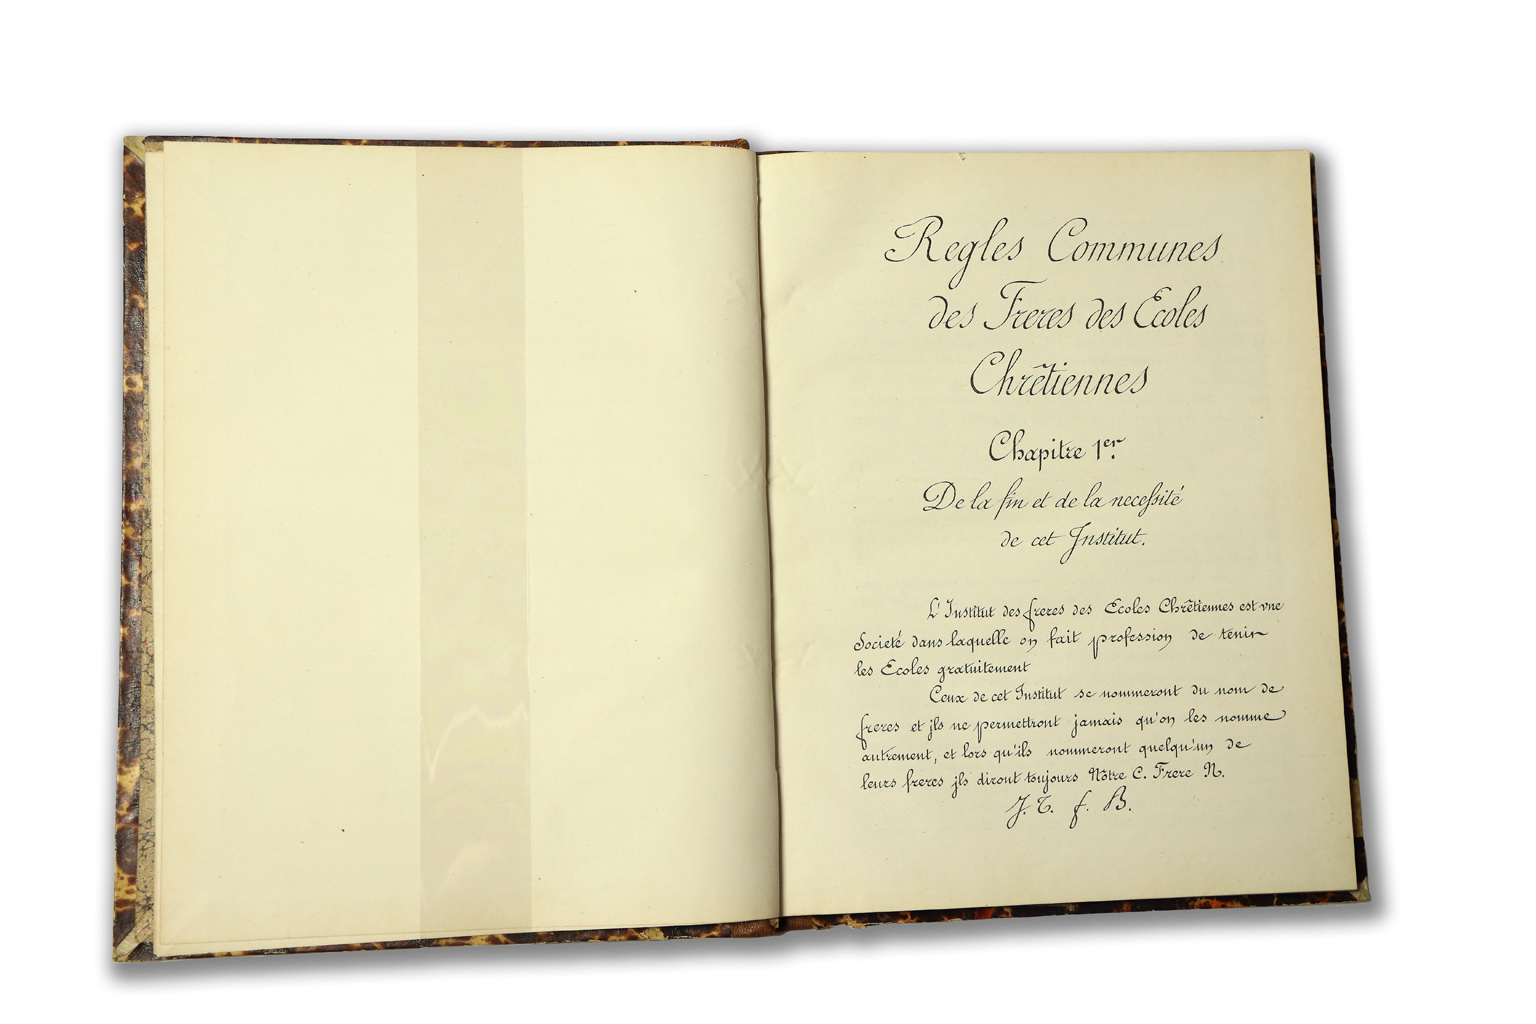 Regles Communes
des Freres des Ecoles
Chrêtiennes
Chapitre 1er.
De la fin et de la neceſsité
de cet Institut.
L'Institut des freres des Ecoles Chrêtiennes est vne
Societé dans laquelle on fait profession de tenir
les Ecoles gratuitement
Ceux de cet Institut se nommeront du nom de
freres et jls ne permettront jamais qu'on les nomme
autrement, et lors qu'ils nommeront quelqu'un de
leurs freres jls diront toujours Nôtre C. Frere N.
J. T. f. B.